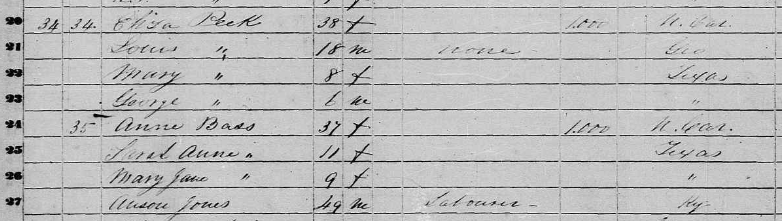 20 34 34 Eliza Peck 38 f 1.000 N. Car.
21 Louis " 18 m none Geo
22 Mary " 8 f Texas
23 George " 6 m "
24 35 Anne Bass 37 f 1.000 N. Car.
25 Anne " 11 f Texas
26 Mary Jane " 9 f "
27 Anson Jones 49 m Labourer Ky